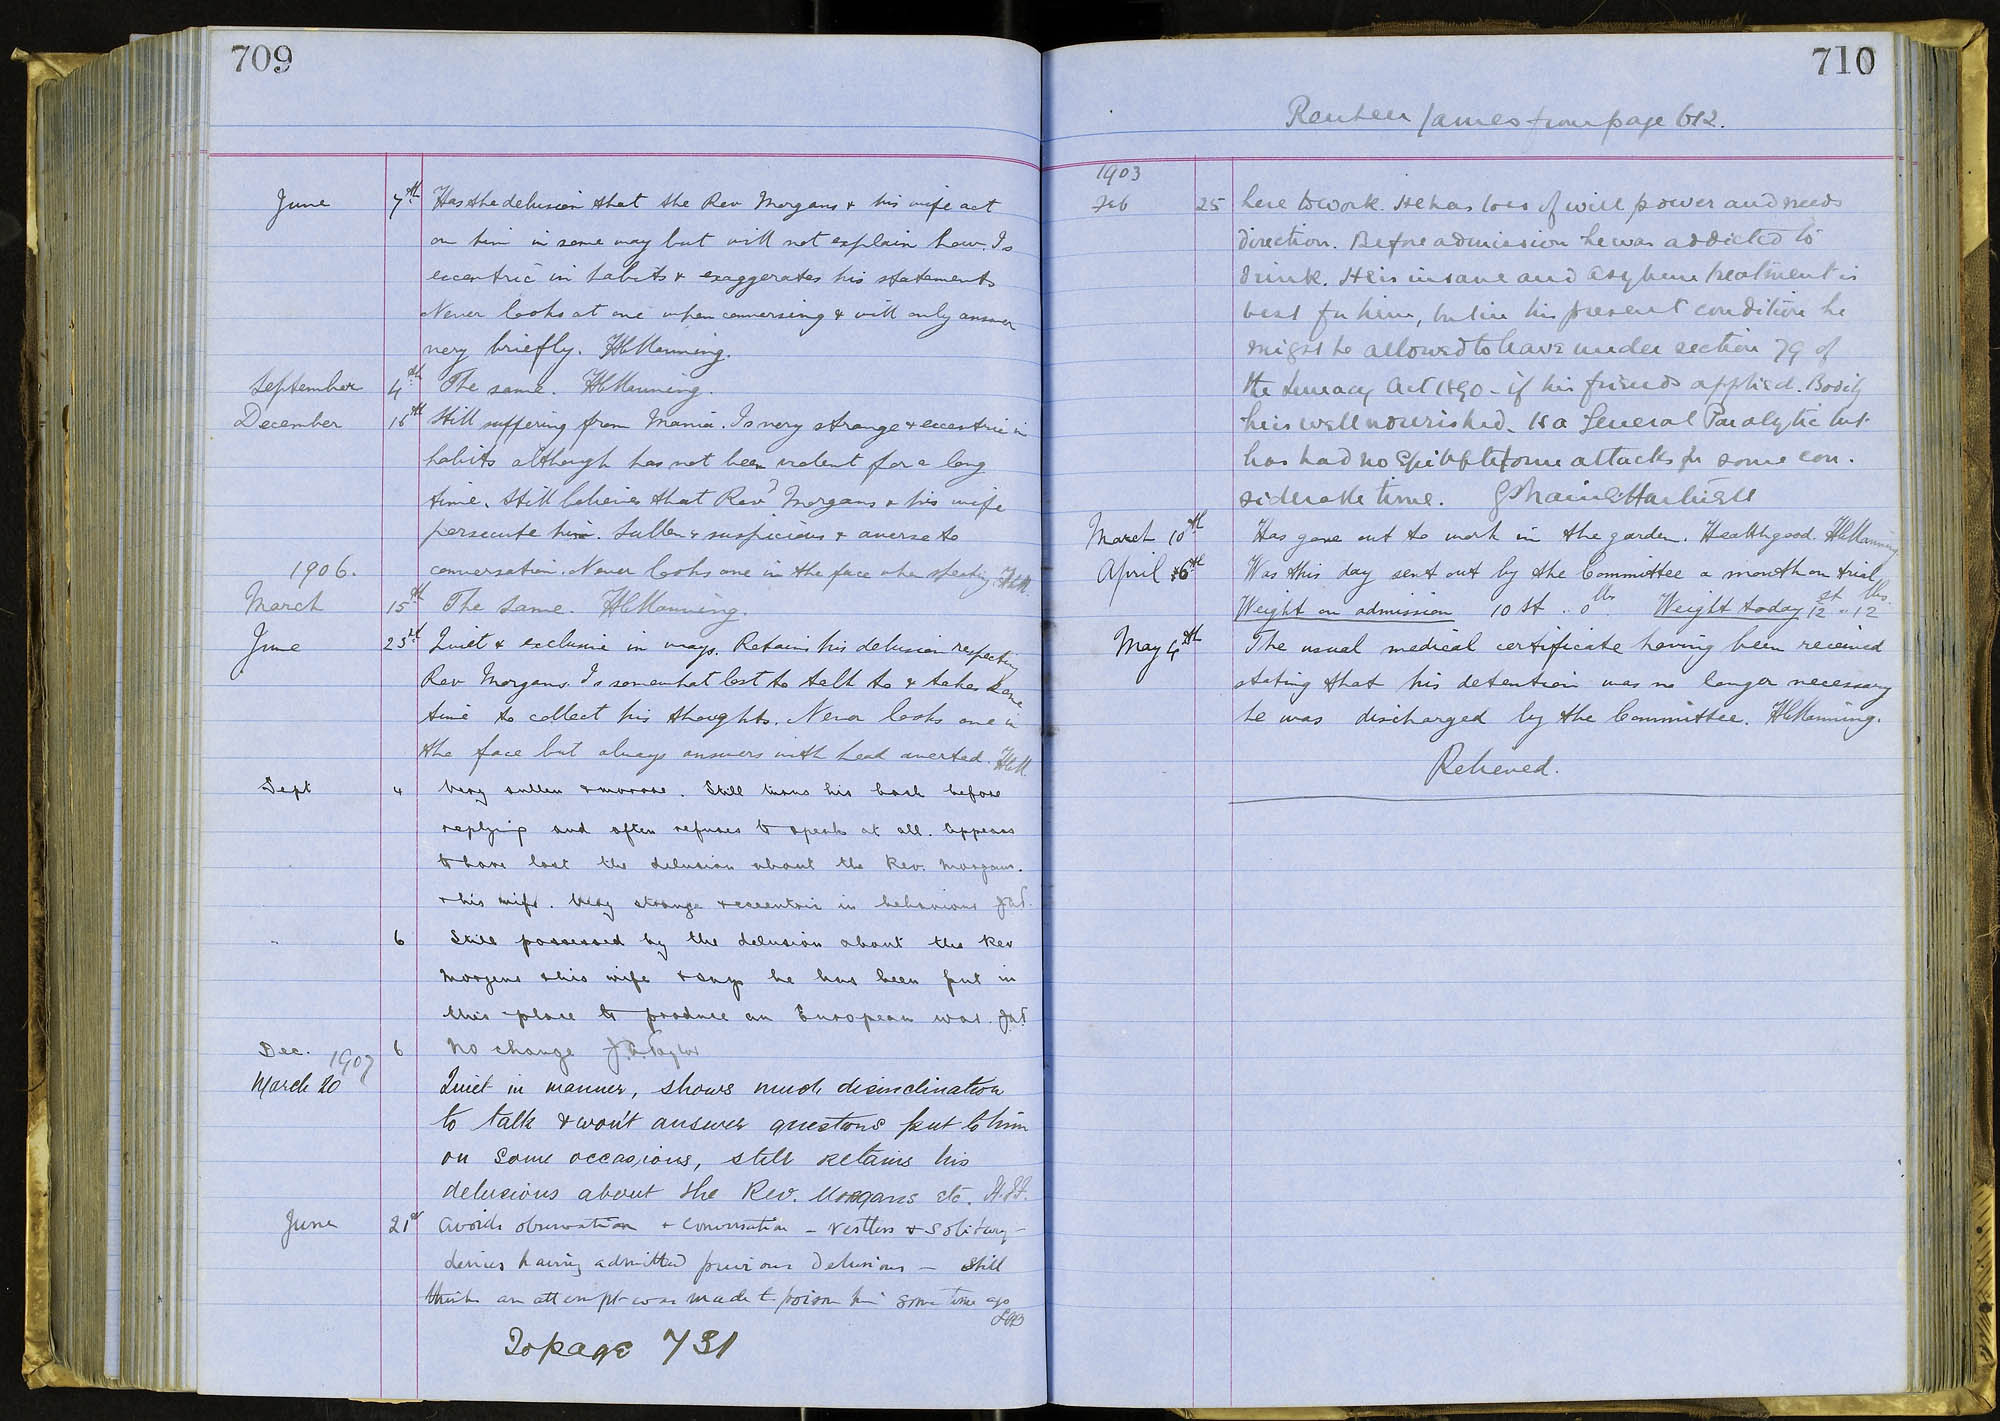 709
June 7th Has the delusion that the Rev Morgans & his wife act
on him in some way but will not explain how. Is
eccentric in habits & exaggerates his statements
Never looks at one when conversing & will only answer
very briefly. HCManning.
September 4th The same. HCManning.
December 16th Still suffering from Mania. Is very strange & eccentric in
habits although has not been violent for a long
time. Still believes that Revd Morgans & his wife
persecute him. Sullen & suspicious & averse to
1906. conversation. Never looks one in the face when speaking. HCM.
March 15th The same. HCManning.
June 23rd Quiet & exclusive in ways. Retains his delusion respecting
Rev Morgans. Is somewhat lost to talk to & takes some
time to collect his thoughts. Never looks one in
the face but always answers with head averted. HCM.
Sept 4 Very sullen & morose. Still turns his back before
replying and often refuses to speak at all. Appears
to have lost the delusion about the Rev. Morgans.
& his wife. Very strange & eccentric in behaviour JAT.
" 6 Still possessed by the delusion about the Rev
Morgens & his wife & says he has been put in
this place to produce an European war. JAT
Dec. 6 No change J.A.Taylor
1907
March 20 Quiet in manner, shows much disinclination
to talk & won't answer questions put to him
on some occasions, still retains his
delusions about the Rev. Morgans etc.
June 21st Avoids observation & conversation – restless & solitary –
denies having admitted previous delusions – still
thinks an attempt was made to poison him some time ago
To page 731
710
Reuben James from page 612.
1903
Feb 25 here to work. He has loss of will power and needs
direction. Before admission he was addicted to
drink. He is insane and asylum treatment is
best for him, but in his present condition he
might be allowed to leave under section 79 of
the Lunacy Act 1890 – if his friends applied. Bodily
he is well nourished. Is a General Paralytic but
has had no Epileptiform attacks for some con-
siderable time.
March 10th Has gone out to work in the garden. Health good. HCManning
April 6th Was this day sent out by the Committee a month on trial
Weight on admission 10 st .. 0 lbs Weight today 12 st .. 12 lbs.
May 4th The usual medical certificate having been received
stating that his detention was no longer necessary
he was discharged by the Committee. HCManning.
Relieved.